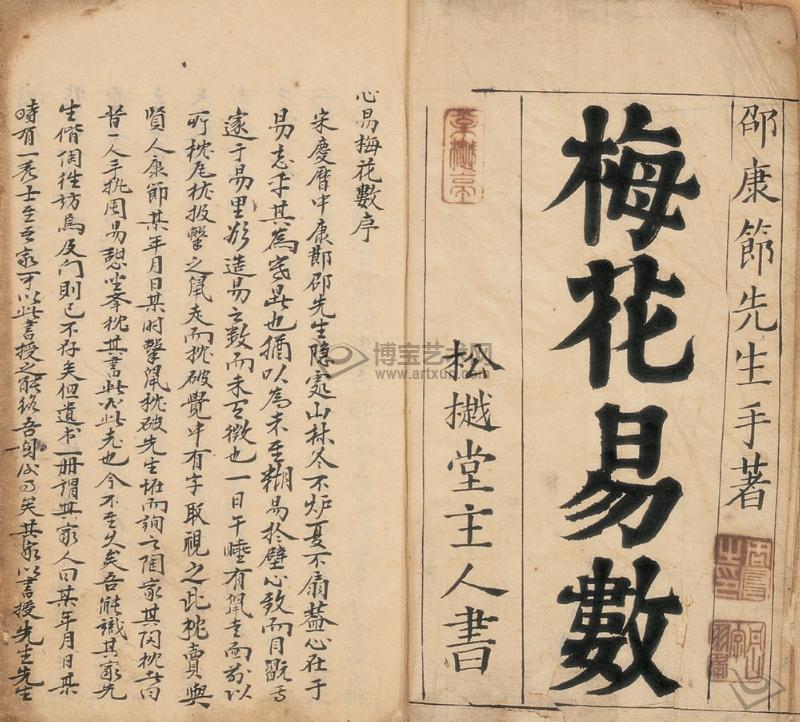 邵康節先生手著
梅花易數
松樾堂主人書
心易梅花數序
宋慶曆中康節邵先生隱處山林冬不炉夏不扇蓋心在于
易忘乎其為寒暑也猶以為未至糊易於壁心致而目翫焉
邃于易里欲造易之数而未有徵也一日午睡有鼠走而前以
所枕瓦枕投擊之鼠走而枕破覺中有字取視之此枕賣與
賢人康節某年月日某时擊鼠枕破先生怪而詢之陶家其陶枕者曰
昔一人手执周易憩坐舉枕其書必此老也今不至久矣吾能識其家先
生偕陶往訪焉及门則已不存矣但遺书一冊謂其家人曰某年月日某
時有一秀士至吾家可以此書授之能终吾身後事矣其家以書授先生先生
博宝艺术网
www.artxun.com